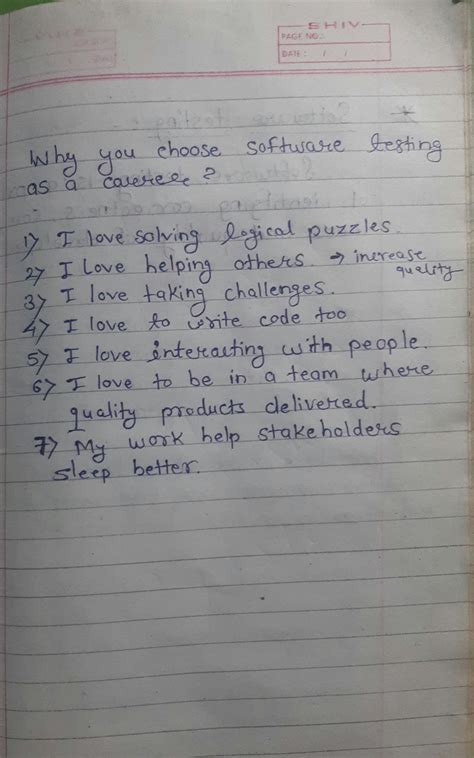 SHIV
PAGE NO.:
DATE: / /
Software testing
Why you choose software testing
as a careree?
1) I love solving logical puzzles.
2) I love helping others. → increase
quality
3) I love taking challenges.
4) I love to write code too
5) I love interacting with people.
6) I love to be in a team where
quality products delivered.
7) My work help stakeholders
sleep better.